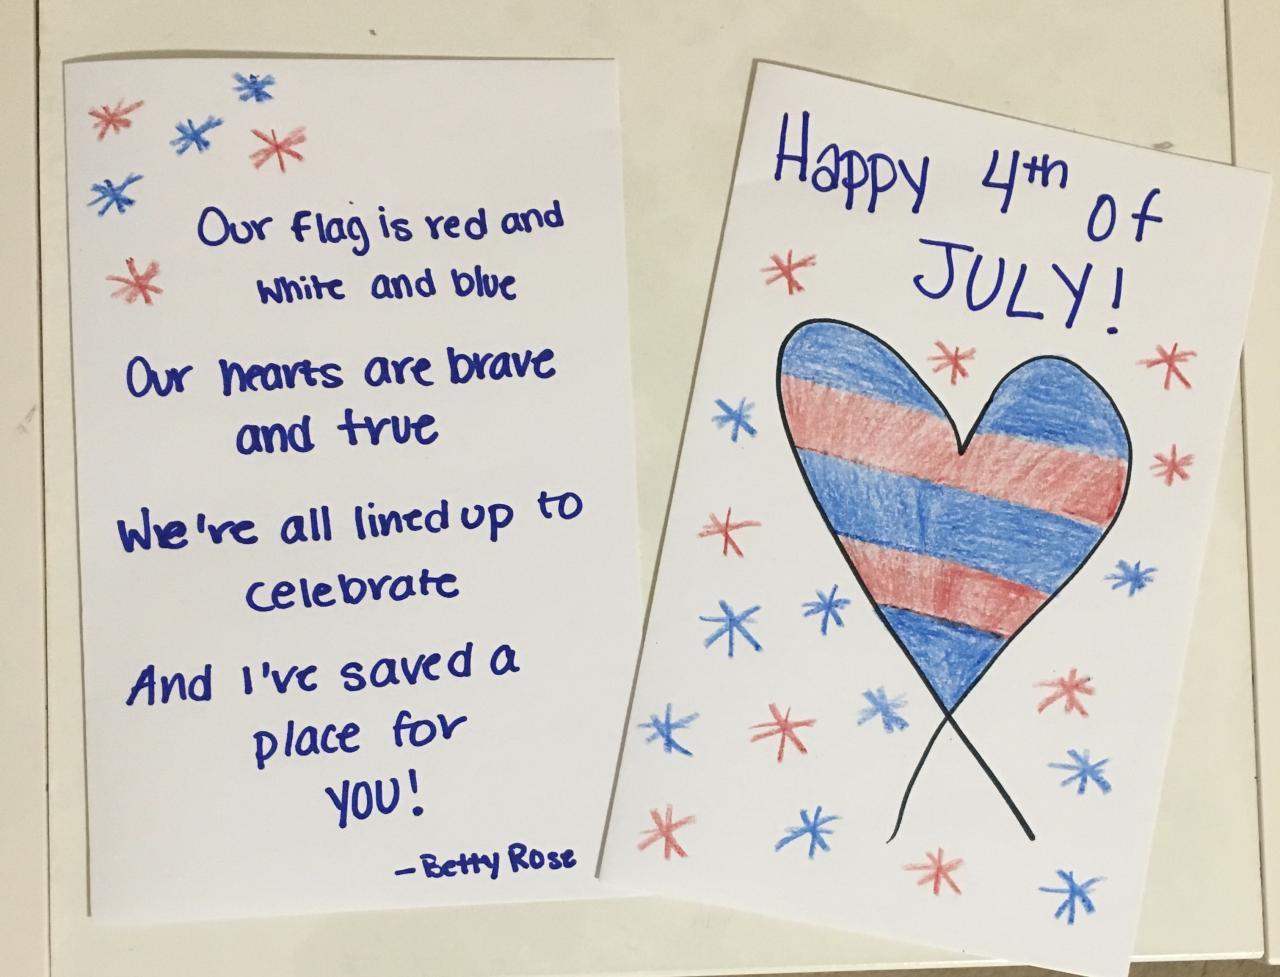 Our flag is red and
white and blue
Our hearts are brave
and true
We're all lined up to
celebrate
And I've saved a
place for
YOU!
- Betty Rose
Happy 4th of
JULY!